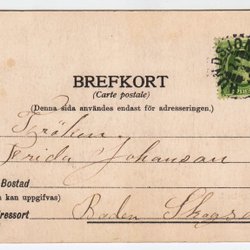 BREFKORT
(Carte postale)
(Denna sida användes endast för adresseringen.)
Fröken
Frida Johanson
Bostad
kan uppgifvas)
Boden